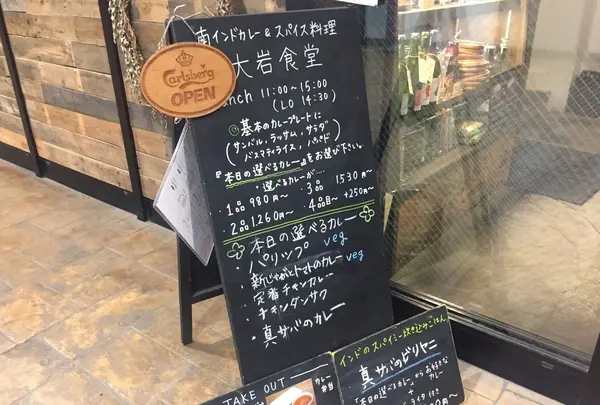 南インドカレー&スパイス料理
大岩食堂
Carlsberg
OPEN
unch 11:00~15:00
(LO 14:30)
◎基本のカレープレートに
(サンバル,ラッサム,サラダ
バスマティライス,パパド)
『本日の選べるカレー』をお選び下さい。
・選べるカレーが…
1品 980円~ 3品 1530円~
2品 1,260円~ 4品目~ +250円~
本日の選べるカレー
・パリップ veg
・新じゃがとトマトのカレー veg
・定番チキンカレー
・チキンダンサク
・真サバのカレー
インドのスパイシー炊き込みごはん
真サバのビリヤニ
「本日の選べるカレー」からお好きな
カレー
+
TAKE OUT
カレー
弁当